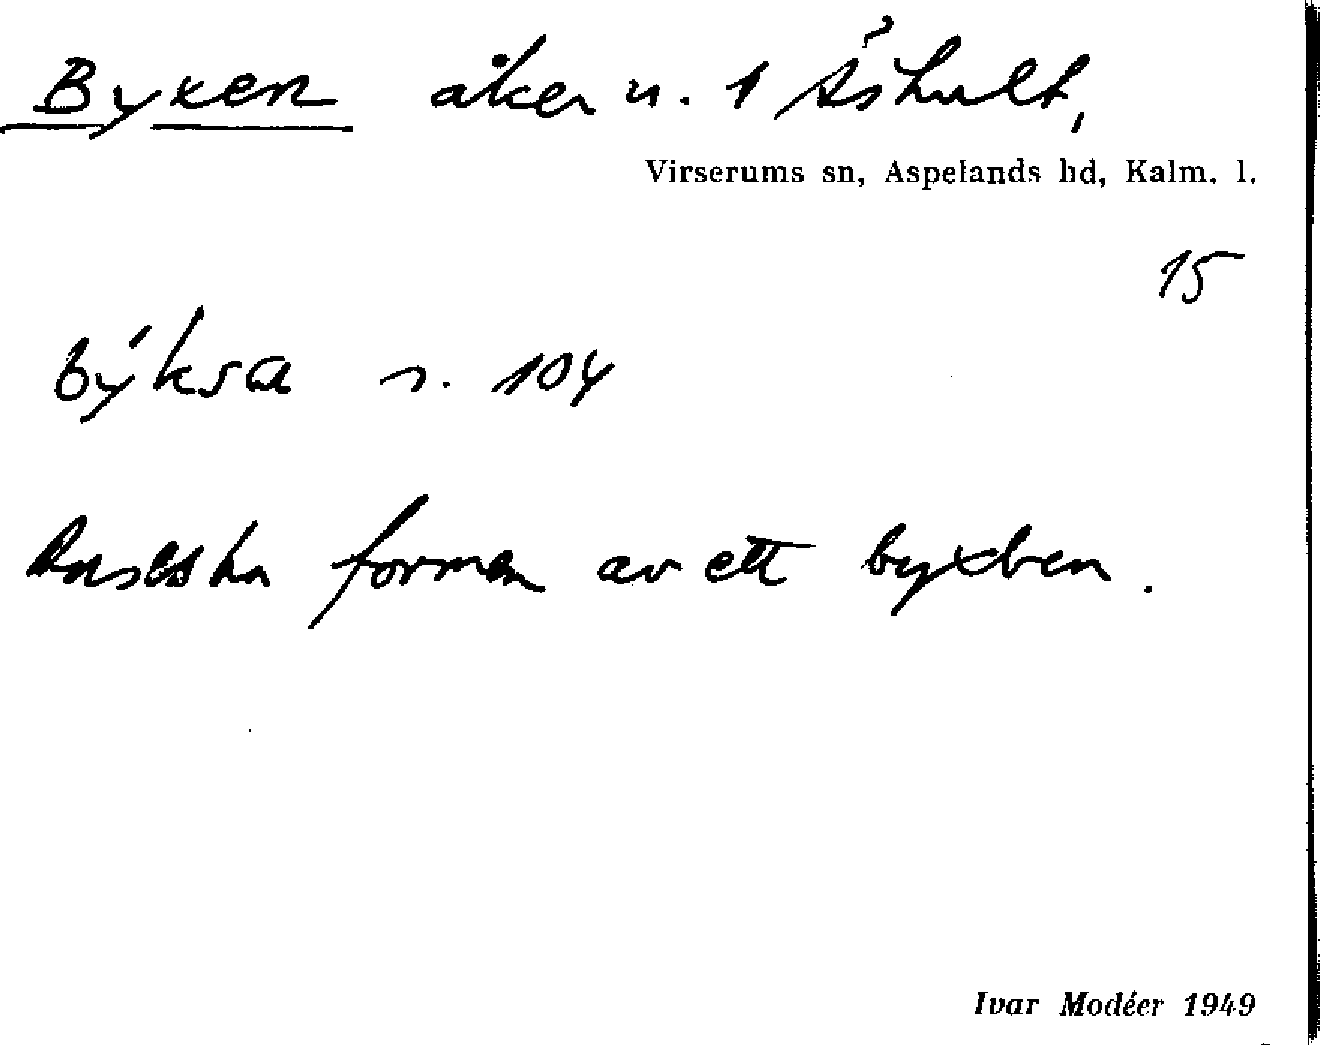 Byxen åker n. 1 Åshult,
Virserums sn, Aspelands hd, Kalm. l.
15
býksa s. 104
formen av ett byxben.
Ivar Modéer 1949